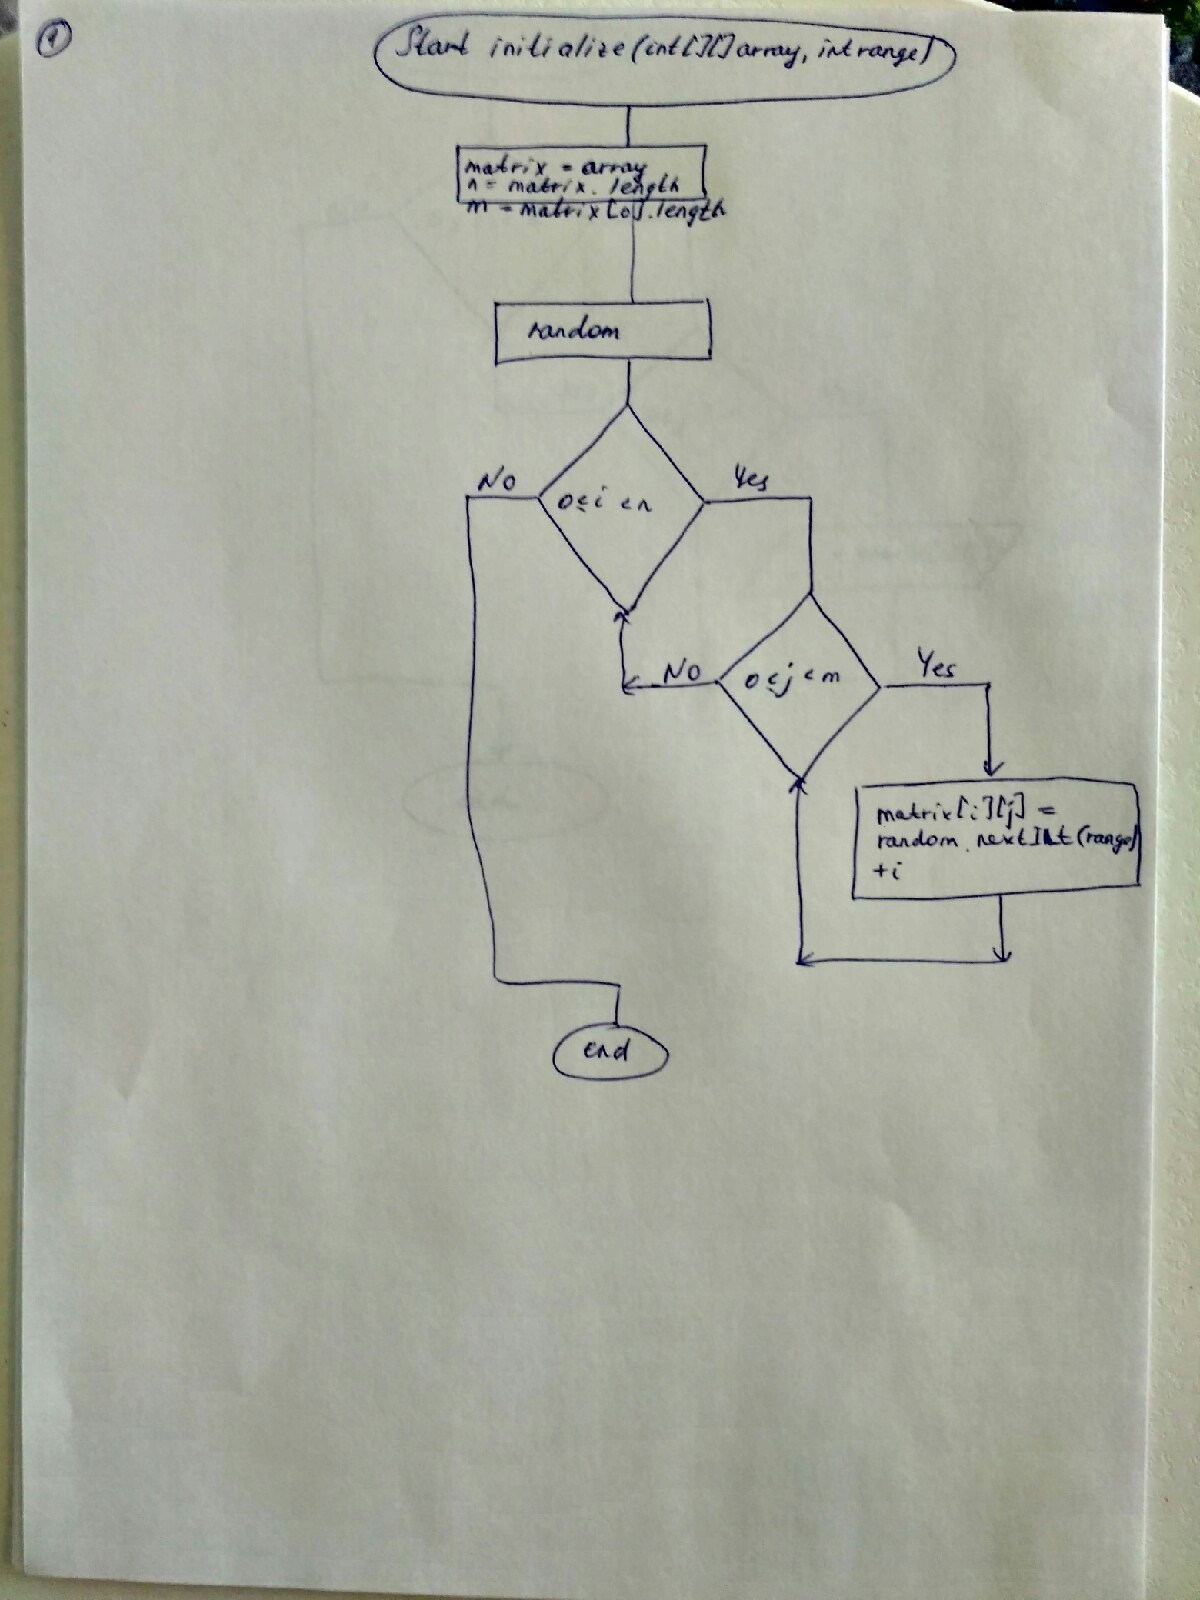 1
Start initialize(int[][] array, int range)
matrix = array
n = matrix.length
m = matrix[0].length
random
No
Yes
0≤i <n
No
0≤j<m
Yes
matrix[i][j] =
random.nextInt(range)
+i
end